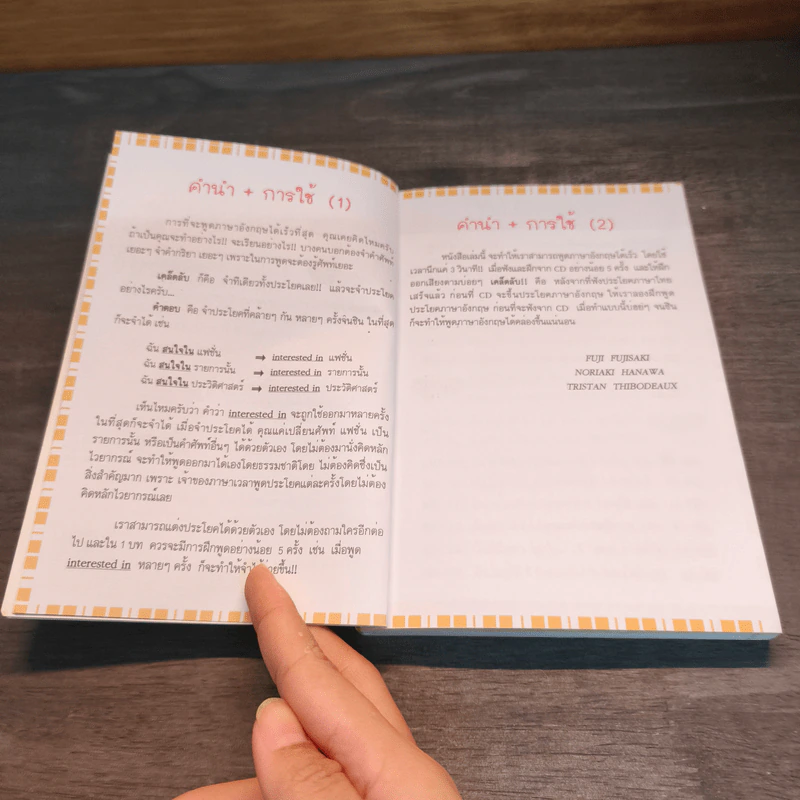 คำนำ + การใช้ (1)
การที่จะพูดภาษาอังกฤษได้เร็วที่สุด คุณเคยคิดไหมครับ
ถ้าเป็นคุณจะทำอย่างไร!! จะเรียนอย่างไร!! บางคนบอกต้องจำคำศัพท์
เยอะๆ จำคำกริยา เยอะๆ เพราะในการพูดจะต้องรู้ศัพท์เยอะ
เคล็ดลับ ก็คือ จำทีเดียวทั้งประโยคเลย!! แล้วจะจำประโยค
อย่างไรครับ...
คำตอบ คือ จำประโยคที่คล้ายๆ กัน หลายๆ ครั้งจนชิน ในที่สุด
ก็จะจำได้ เช่น
ฉัน สนใจใน แฟชั่น ➞ interested in แฟชั่น
ฉัน สนใจใน รายการนั้น ➞ interested in รายการนั้น
ฉัน สนใจใน ประวัติศาสตร์ ➞ interested in ประวัติศาสตร์
เห็นไหมครับว่า คำว่า interested in จะถูกใช้ออกมาหลายครั้ง
ในที่สุดก็จะจำได้ เมื่อจำประโยคได้ คุณแค่เปลี่ยนศัพท์ แฟชั่น เป็น
รายการนั้น หรือเป็นคำศัพท์อื่นๆ ได้ด้วยตัวเอง โดยไม่ต้องมานั่งคิดหลัก
ไวยากรณ์ จะทำให้พูดออกมาได้เองโดยธรรมชาติโดย ไม่ต้องคิดซึ่งเป็น
สิ่งสำคัญมาก เพราะ เจ้าของภาษาเวลาพูดประโยคแต่ละครั้งโดยไม่ต้อง
คิดหลักไวยากรณ์เลย
เราสามารถแต่งประโยคได้ด้วยตัวเอง โดยไม่ต้องถามใครอีกต่อ
ไป และใน 1 บท ควรจะมีการฝึกพูดอย่างน้อย 5 ครั้ง เช่น เมื่อพูด
interested in หลายๆ ครั้ง ก็จะทำให้จำได้ง่ายขึ้น!!
คำนำ + การใช้ (2)
หนังสือเล่มนี้ จะทำให้เราสามารถพูดภาษาอังกฤษได้เร็ว โดยใช้
เวลานึกแค่ 3 วินาที!! เมื่อฟังและฝึกจาก CD อย่างน้อย 5 ครั้ง และให้ฝึก
ออกเสียงตามบ่อยๆ เคล็ดลับ!! คือ หลังจากที่ฟังประโยคภาษาไทย
เสร็จแล้ว ก่อนที่ CD จะขึ้นประโยคภาษาอังกฤษ ให้เราลองฝึกพูด
ประโยคภาษาอังกฤษ ก่อนที่จะฟังจาก CD เมื่อทำแบบนี้บ่อยๆ จนชิน
ก็จะทำให้พูดภาษาอังกฤษได้คล่องขึ้นแน่นอน
FUJI FUJISAKI
NORIAKI HANAWA
TRISTAN THIBODEAUX